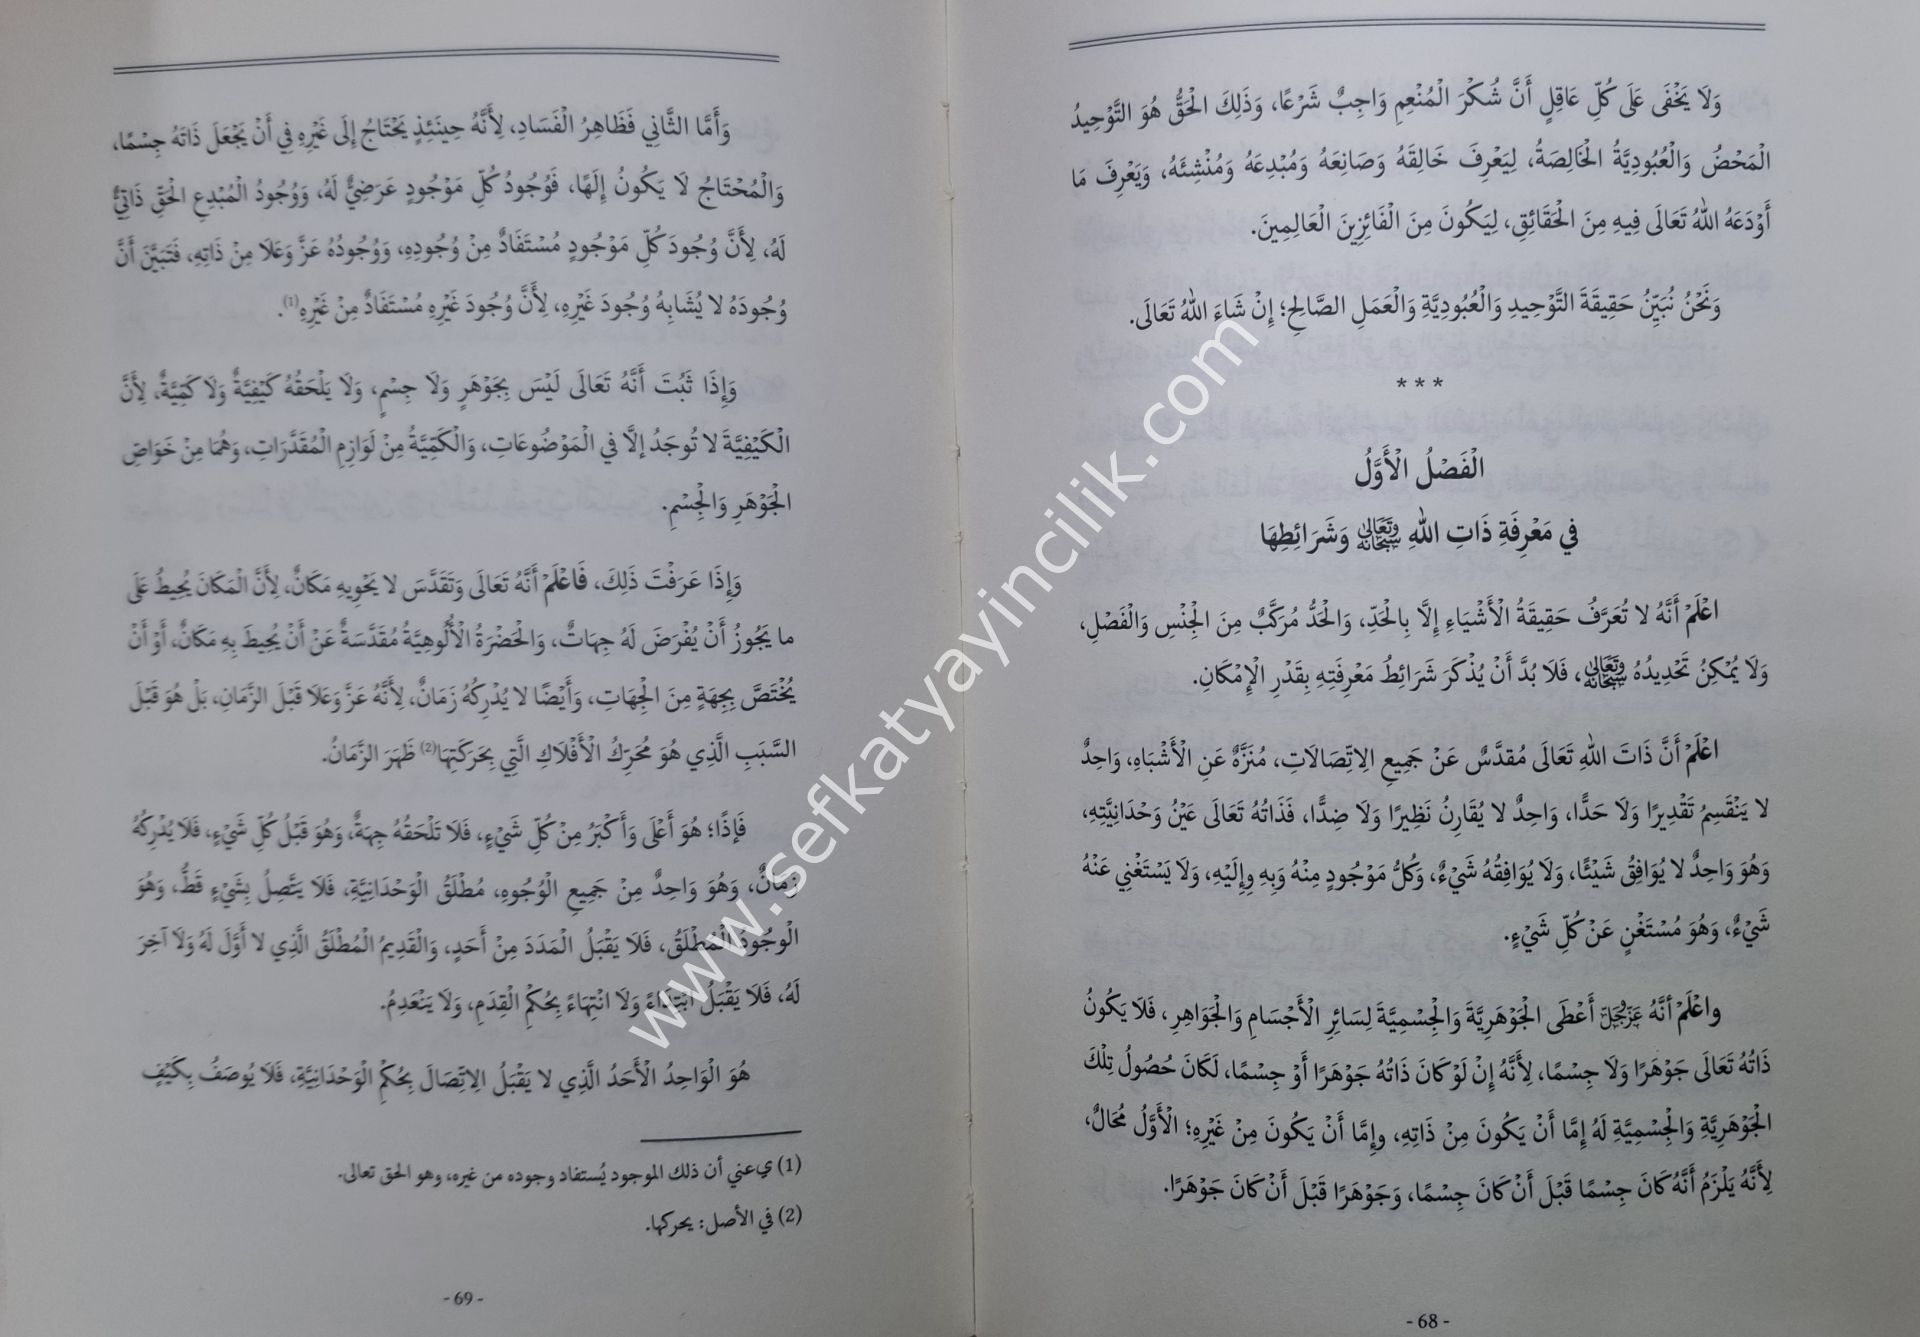 وَلَا يَخْفَى عَلَى كُلِّ عَاقِلٍ أَنَّ شُكْرَ الْمُنْعِمِ وَاجِبٌ شَرْعًا، وَذَلِكَ الْحَقُّ هُوَ التَّوْحِيدُ
الْمَحْضُ وَالْعُبُودِيَّةُ الْخَالِصَةُ، لِيَعْرِفَ خَالِقَهُ وَصَانِعَهُ وَمُبْدِعَهُ وَمُنْشِئَهُ، وَيَعْرِفَ مَا
أَوْدَعَهُ اللهُ تَعَالَى فِيهِ مِنَ الْحَقَائِقِ، لِيَكُونَ مِنَ الْفَائِزِينَ الْعَالِمِينَ.
وَنَحْنُ نُبَيِّنُ حَقِيقَةَ التَّوْحِيدِ وَالْعُبُودِيَّةِ وَالْعَمَلِ الصَّالِحِ؛ إِنْ شَاءَ اللهُ تَعَالَى.
* * *
الْفَصْلُ الْأَوَّلُ
فِي مَعْرِفَةِ ذَاتِ اللهِ سُبْحَانَهُ وَتَعَالَى وَشَرَائِطِهَا
اعْلَمْ أَنَّهُ لا تُعَرَّفُ حَقِيقَةُ الْأَشْيَاءِ إِلَّا بِالْحَدِّ، وَالْحَدُّ مُرَكَّبٌ مِنَ الْجِنْسِ وَالْفَصْلِ،
وَلَا يُمْكِنُ تَحْدِيدُهُ سُبْحَانَهُ وَتَعَالَى، فَلَا بُدَّ أَنْ يُذْكَرَ شَرَائِطُ مَعْرِفَتِهِ بِقَدْرِ الْإِمْكَانِ.
اعْلَمْ أَنَّ ذَاتَ اللهِ تَعَالَى مُقدَّسٌ عَنْ جَمِيعِ الِاتِّصَالَاتِ، مُنَزَّهٌ عَنِ الْأَشْبَاهِ، وَاحِدٌ
لا يَنْقَسِمُ تَقْدِيرًا وَلَا حَدًّا، وَاحِدٌ لا يُقَارِنُ نَظِيرًا وَلَا ضِدًّا، فَذَاتُهُ تَعَالَى عَيْنُ وَحْدَانِيَّتِهِ،
وَهُوَ وَاحِدٌ لا يُوَافِقُ شَيْئًا، وَلَا يُوَافِقُهُ شَيْءٌ، وَكُلُّ مَوْجُودٍ مِنْهُ وَبِهِ وإِلَيْهِ، وَلَا يَسْتَغْنِي عَنْهُ
شَيْءٌ، وَهُوَ مُسْتَغْنٍ عَنْ كُلِّ شَيْءٍ.
واعْلَمْ أنَّهُ عَزَّ وَجَلَّ أَعْطَى الْجَوْهَرِيَّةَ وَالْجِسْمِيَّةَ لِسَائِرِ الْأَجْسَامِ وَالْجَوَاهِرِ، فَلَا يَكُونُ
ذَاتُهُ تَعَالَى جَوْهَرًا وَلَا جِسْمًا، لِأَنَّهُ إِنْ لَوْ كَانَ ذَاتُهُ جَوْهَرًا أَوْ جِسْمًا، لَكَانَ حُصُولُ تِلْكَ
الْجَوْهَرِيَّةِ وَالْجِسْمِيَّةِ لَهُ إِمَّا أَنْ يَكُونَ مِنْ ذَاتِهِ، وإِمَّا أَنْ يَكُونَ مِنْ غَيْرِهِ؛ الْأَوَّلُ مُحَالٌ،
لِأَنَّهُ يَلْزَمُ أَنَّهُ كَانَ جِسْمًا قَبْلَ أَنْ كَانَ جِسْمًا، وَجَوْهَرًا قَبْلَ أَنْ كَانَ جَوْهَرًا.
- 68 -
وَأَمَّا الثَّانِي فَظَاهِرُ الْفَسَادِ، لِأَنَّهُ حِينَئِذٍ يَحْتَاجُ إِلَى غَيْرِهِ فِي أَنْ يَجْعَلَ ذَاتَهُ جِسْمًا،
وَالْمُحْتَاجُ لَا يَكُونُ إِلَهًا، فَوُجُودُ كُلِّ مَوْجُودٍ عَرَضِيٌّ لَهُ، وَوُجُودُ الْمُبْدِعِ الْحَقِّ ذَاتِيٌّ
لَهُ، لِأَنَّ وُجُودَ كُلِّ مَوْجُودٍ مُسْتَفَادٌ مِنْ وُجُودِهِ، وَوُجُودُهُ عَزَّ وَعَلَا مِنْ ذَاتِهِ، فَتَبَيَّنَ أَنَّ
وُجُودَهُ لا يُشَابِهُ وُجُودَ غَيْرِهِ، لِأَنَّ وُجُودَ غَيْرِهِ مُسْتَفَادٌ مِنْ غَيْرِهِ(1).
وَإِذَا ثَبُتَ أَنَّهُ تَعَالَى لَيْسَ بِجَوْهَرٍ وَلَا جِسْمٍ، وَلَا يَلْحَقُهُ كَيْفِيَّةٌ وَلَا كَمِيَّةٌ، لِأَنَّ
الْكَيْفِيَّةَ لا تُوجَدُ إلَّا فِي الْمَوْضُوعَاتِ، وَالْكَمِّيَّةُ مِنْ لَوَازِمِ الْمُقَدَّرَاتِ، وَهُمَا مِنْ خَوَاصِّ
الْجَوْهَرِ وَالْجِسْمِ.
وَإِذَا عَرَفْتَ ذَلِكَ، فَاعْلَمْ أَنَّهُ تَعَالَى وَتَقَدَّسَ لا يَحْوِيهِ مَكَانٌ، لِأَنَّ الْمَكَانَ يُحِيطُ عَلَى
ما يَجُوزُ أَنْ يُفْرَضَ لَهُ جِهَاتٌ، وَالْحَضْرَةُ الْأُلُوهِيَّةُ مُقَدَّسَةٌ عَنْ أَنْ يُحِيطَ بِهِ مَكَانٌ، أَوْ أَنْ
يُخْتَصَّ بِجِهَةٍ مِنَ الْجِهَاتِ، وَأَيْضًا لا يُدْرِكُهُ زَمَانٌ، لِأَنَّهُ عَزَّ وَعَلَا قَبْلَ الزَّمَانِ، بَلْ هُوَ قَبْلَ
السَّبَبِ الَّذِي هُوَ مُحَرِّكُ الْأَفْلَاكِ الَّتِي بِحَرَكَتِهَا(2) ظَهَرَ الزَّمَانُ.
فَإِذًا؛ هُوَ أَعْلَى وَأَكْبَرُ مِنْ كُلِّ شَيْءٍ، فَلَا تَلْحَقُهُ جِهَةٌ، وَهُوَ قَبْلُ كُلِّ شَيْءٍ، فَلَا يُدْرِكُهُ
زَمَانٌ، وَهُوَ وَاحِدٌ مِنْ جَمِيعِ الْوُجُوهِ، مُطْلَقُ الْوَحْدَانِيَّةِ، فَلَا يَتَّصِلُ بِشَيْءٍ قَطُّ، وَهُوَ
الْوجُودُ الْمُطْلَقُ، فَلَا يَقْبَلُ الْمَدَدَ مِنْ أَحَدٍ، وَالْقَدِيمُ الْمُطْلَقُ الَّذِي لا أَوَّلَ لَهُ وَلَا آخِرَ
لَهُ، فَلَا يَقْبَلُ ابْتِدَاءً وَلَا انْتِهَاءً بِحُكْمِ الْقِدَمِ، وَلَا يَنْعَدِمُ.
هُوَ الْوَاحِدُ الْأَحَدُ الَّذِي لا يَقْبَلُ الِاتِّصَالَ بِحُكْمِ الْوَحْدَانِيَّةِ، فَلَا يُوصَفُ بِكَيْفٍ
(1) يعني أن ذلك الموجود يُستفاد وجوده من غيره، وهو الحق تعالى.
(2) في الأصل: يحركها.
- 69 -
www.sefkatyayincilik.com